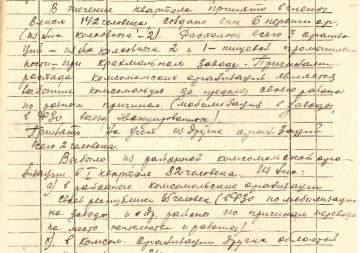 В течение квартала принято в члены
ВЛКСМ 142 человека, создано вновь 6 первичн. ор.
(из них колхозных - 2). Распалось всего 3 организ
из них колхозных 2 и 1 - пищевой промышлен
ности - при крахмальном заводе. Причинами
распада комсомольских организаций является
выбытие комсомольцев за пределы своего района
по разным причинам (мобилизация в заводы,
в ФЗО
Принято на учет из других организаций
всего 2 человека.
Выбыло из районной комсомольской орга
низации в I квартале 82 человека. Из них:
а) в районные комсомольские организации
своей республики 75 человек (ФЗО по мобилизации
на заводы и др. районы по причинам перевода
на место жительства и работы)
б) в комсом. организации других областей